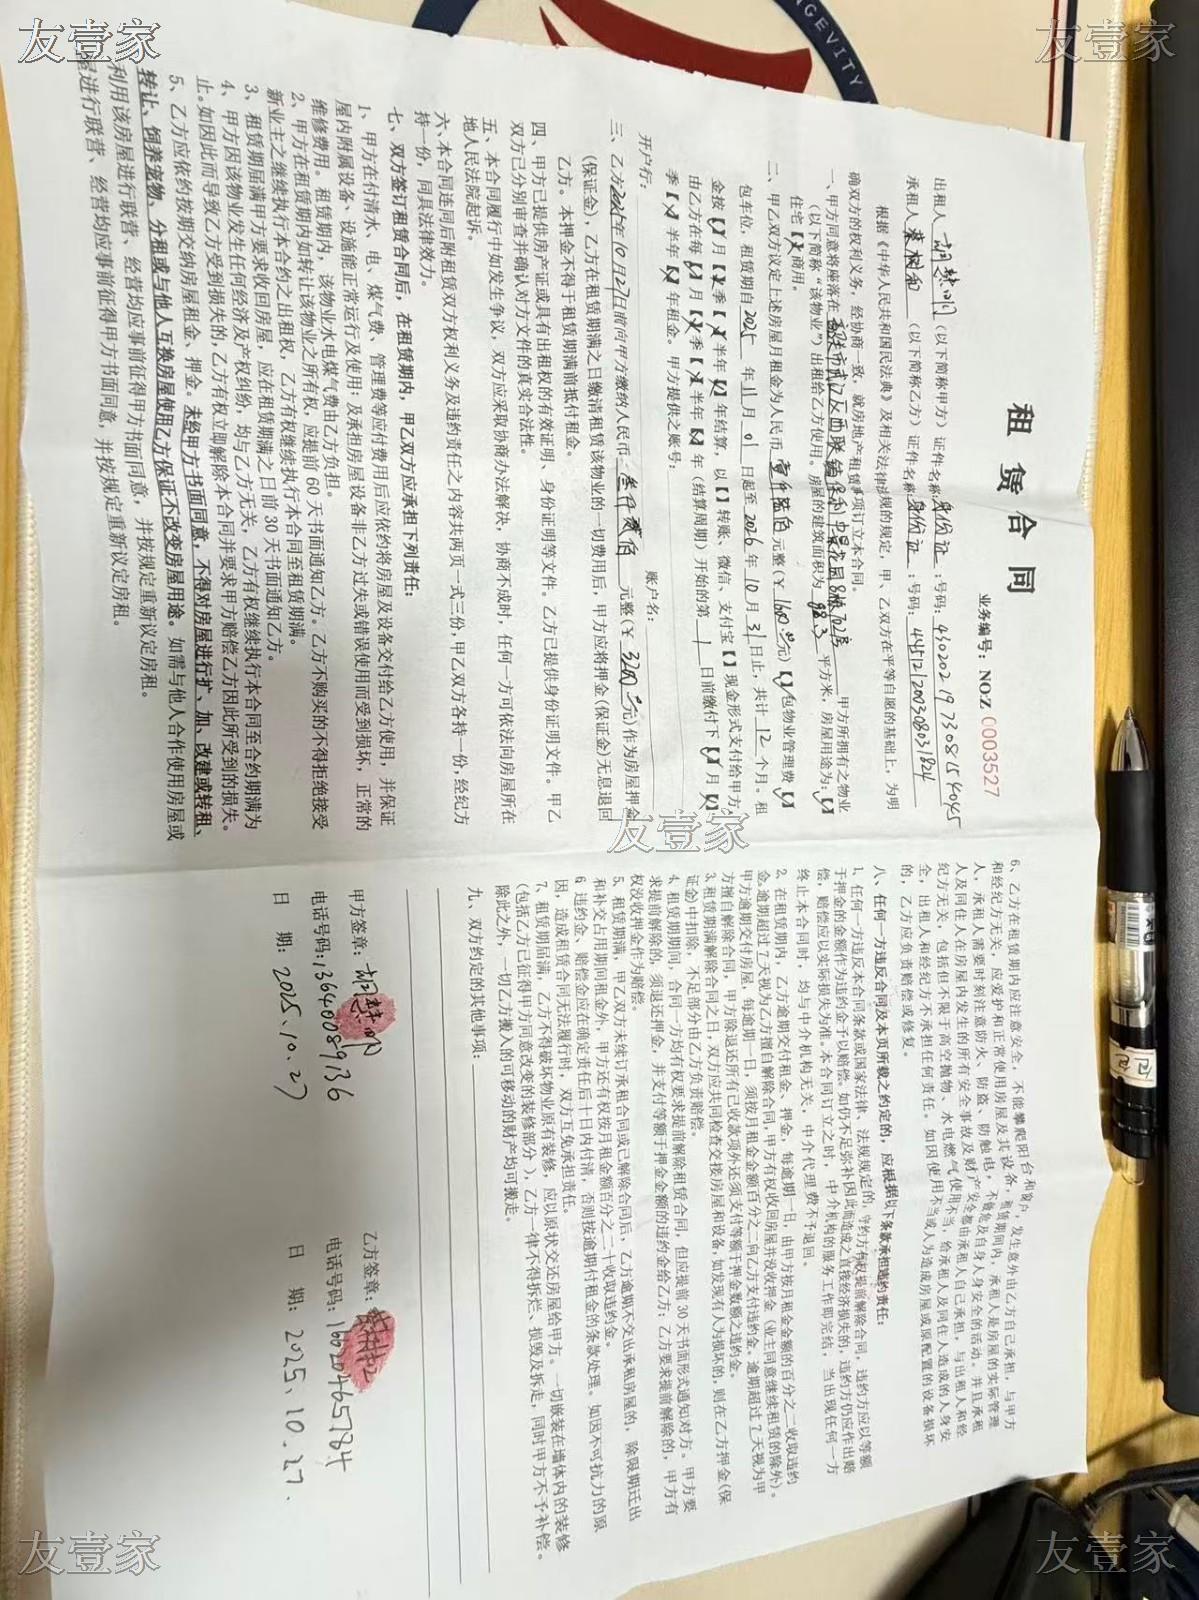 租赁合同
业务编号：NO:Z 0003527
（以下简称甲方）证件名称身份证：号码：
（以下简称乙方）证件名称身份证：号码：445121200308031824
根据《中华人民共和国民法典》及相关法律法规的规定，甲、乙双方在平等自愿的基础上，为明
确双方的权利义务，经协商一致，就房地产租赁事项订立本合同。
一、甲方同意将座落在 甲方所拥有之物业
（以下简称“该物业”）出租给乙方使用。房屋的建筑面积为 88.3 平方米，房屋用途为：【√】
住宅【】商用。
二、甲乙双方议定上述房屋月租金为人民币 壹仟陆佰 元整（￥1600.00元）【√】包物业管理费【】
包车位，租赁期自2025年11月01日起至2026年10月31日止，共计12个月。租
金按【√】月【】季【】半年【】年结算，以【】转账、微信、支付宝【】现金形式支付给甲方，
由乙方在每【√】月【】季【】半年【】年（结算周期）开始的第 1 日前缴付下【√】月【】
季【】半年【】年租金。甲方提供之账号：
开户行： 账户名：
三、乙方2025年10月27日前向甲方缴纳人民币 叁仟贰佰 元整（￥3200.00元）作为房屋押金
（保证金），乙方在租赁期满之日缴清租赁该物业的一切费用后，甲方应将押金（保证金）无息退回
乙方。本押金不得于租赁期满前抵付租金。
四、甲方已提供房产证或具有出租权的有效证明、身份证明等文件。乙方已提供身份证明文件。甲乙
双方已分别审查并确认对方文件的真实合法性。
五、本合同履行中如发生争议，双方应采取协商办法解决，协商不成时，任何一方可依法向房屋所在
地人民法院起诉。
六、本合同连同后附租赁双方权利义务及违约责任之内容共两页一式三份，甲乙双方各持一份，经纪方
持一份，同具法律效力。
七、双方签订租赁合同后，在租赁期内，甲乙双方应承担下列责任：
1、甲方在付清水、电、煤气费、管理费等应付费用后应依约将房屋及设备交付给乙方使用，并保证
屋内附属设备、设施能正常运行及使用；及承担房屋设备非乙方过失或错误使用而受到损坏，正常的
维修费用。租赁期内，该物业水电煤气费由乙方负担。
2、甲方在租赁期内如转让该物业之所有权，应提前60天书面通知乙方。乙方不购买的不得拒绝接受
新业主之继续执行本合约之出租权，乙方有权继续执行本合同至租赁期满。
3、租赁期届满甲方要求收回房屋，应在租赁期满之日前30天书面通知乙方。
4、甲方因该物业发生任何经济及产权纠纷，均与乙方无关，乙方有权继续执行本合同至合约期满为
止。如因此而导致乙方受到损失的，乙方有权立即解除本合同并要求甲方赔偿乙方因此所受到的损失。
5、乙方应依约按期交纳房屋租金、押金。未经甲方书面同意，不得对房屋进行扩、加、改建或转租、
转让、饲养宠物、分租或与他人互换房屋使用乙方保证不改变房屋用途。如需与他人合作使用房屋或
利用该房屋进行联营、经营均应事前征得甲方书面同意，并按规定重新议定房租。
屋进行联营、经营均应事前征得甲方书面同意，并按规定重新议定房租。
6、乙方在租赁期内应注意安全，不能攀爬阳台和窗户，发生意外由乙方自己承担，与甲方
和经纪方无关，应爱护和正常使用房屋及其设备，租赁期间内，承租人是房屋的实际管理
人，承租人需要时刻注意防火、防盗、防触电，不做危及自身人身安全的活动。并且承租
人及同住人在房屋内发生的所有安全事故及财产安全都由承租人自己承担，与出租人和经
纪方无关，包括但不限于高空抛物、水电燃气使用不当，给承租人及同住人造成的人身安
全，出租人和经纪方不承担任何责任。如因使用不当或人为造成房屋或原配置的设备损坏
的，乙方应负责赔偿或修复。
八、任何一方违反合同及本页所载之约定的，应根据以下条款承担违约责任：
1、任何一方违反本合同条款或国家法律、法规规定的，守约方有权提前解除合同，违约方应以等额
于押金的金额作为违约金予以赔偿。如仍不足弥补因此而造成之直接经济损失的，违约方仍应作出赔
偿，赔偿应以实际损失为准。本合同订立之时，中介机构的服务工作即完结，当出现任何一方
终止本合同时，均与中介机构无关，中介代理费不予退回。
2、在租赁期内，乙方逾期交付租金、押金，每逾期一日，由甲方按月租金金额的百分之二收取违约
金。逾期超过7天视为乙方擅自解除合同，甲方有权收回房屋并没收押金（业主同意继续租赁的除外）。
甲方逾期交付房屋，每逾期一日，须按月租金金额百分之二向乙方支付违约金。逾期超过7天视为甲
方擅自解除合同，甲方除退还所有已收款项外还须支付等额于押金数额之违约金。
3、租赁期满解除合同之日，双方应共同检查交接房屋和设备，如发现有人为损坏的，则在乙方押金（保
证金）中扣除，不足部分由乙方负责赔偿。
4、租赁期期间，合同一方均有权要求提前解除租赁合同，但应提前30天书面形式通知对方。甲方要
求提前解除的，须退还押金，并支付等额于押金金额的违约金给乙方；乙方要求提前解除的，甲方有
权没收押金作为赔偿。
5、租赁期满，甲乙双方未续订承租合同或已解除合同后，乙方逾期不交出承租房屋的，除限期迁出
和补交占用期间租金外，甲方还有权按月租金额百分之二十收取违约金。
6、违约金、赔偿金应在确定责任后十日内付清，否则按逾期付租金的条款处理。如因不可抗力的原
因，造成租赁合同无法履行时，双方互免承担责任。
7、租赁期届满，乙方不得破坏物业原有装修，应以原状交还房屋给甲方。一切嵌装在墙体内的装修
（包括乙方已征得甲方同意改变的装修部分），乙方一律不得拆烂、损毁及拆走，同时甲方不予补偿。
除此之外，一切乙方搬入的可移动的财产均可搬走。
九、双方约定的其他事项：
甲方签章： 乙方签章：
电话号码：13640089136 电话号码：16620465784
日 期：2025.10.27 日 期：2025.10.27.
NGEVITY
友壹家
友壹家
友壹家
友壹家
友壹家